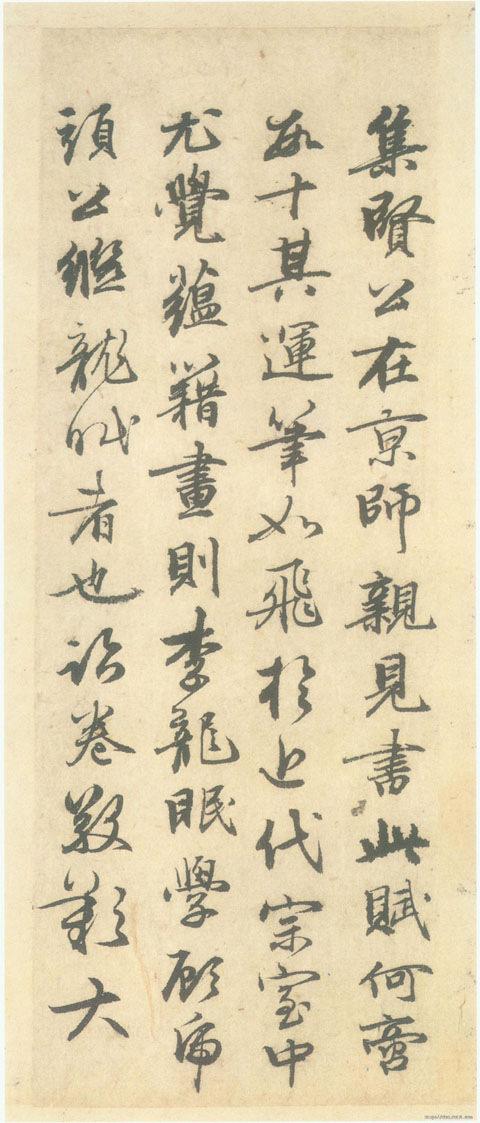 集賢公在京師親見書此賦何啻
數十其運筆如飛於近代宗室中
尤覺蘊籍畫則李龍眠學顧虎
頭公繼龍眠者也臨卷敬歎大